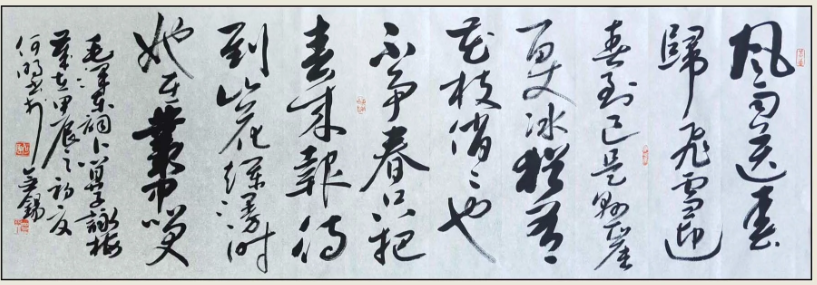 風雨送春
歸飛雪迎
春到已是懸崖
百丈冰猶有
花枝俏々也
不爭春只把
春來報待
到山花爛漫時
她在叢中笑
毛澤東詞卜算子詠梅
歲在甲辰之初夏
何明书於
無錫